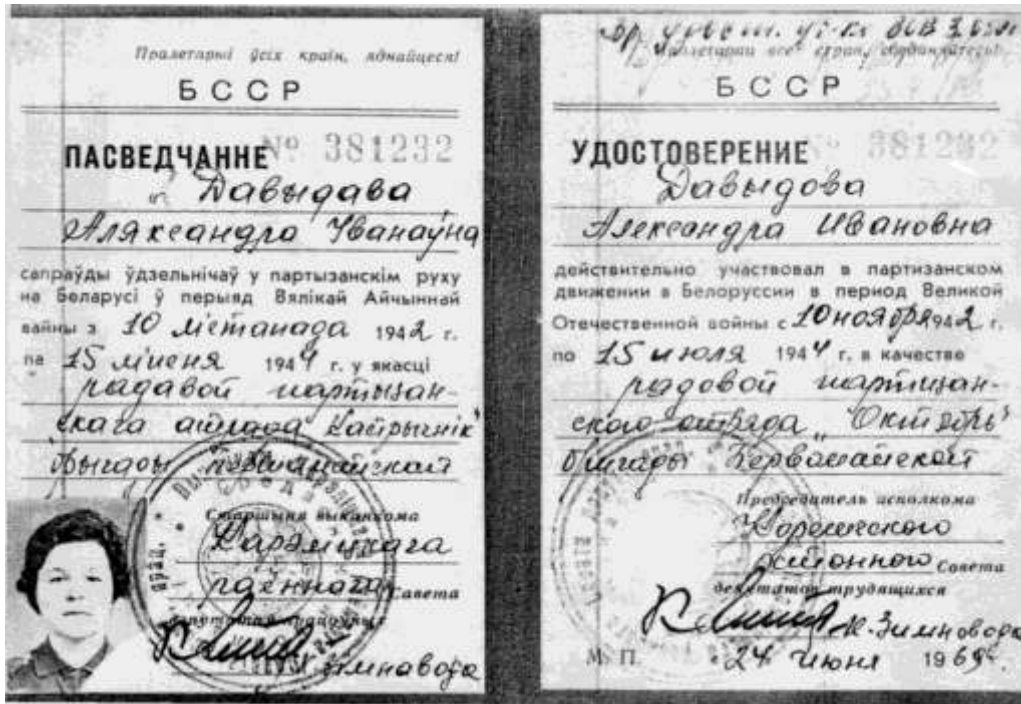 Пралетарыі ўсіх краін, яднайцеся!
БССР
ПАСВЕДЧАННЕ № 381232
Давыдава
Аляксандра Іванаўна
сапраўды ўдзельнічаў у партызанскім руху
на Беларусі ў перыяд Вялікай Айчыннай
вайны з 10 лістапада 1942 г.
па 15 ліпеня 1944 г. у якасці
радавой партызан-
скага атрада "Кастрычнік"
брыгады Першамайской
Старшыня выканкома
Карэліцкага
раённага Савета
дэпутатаў працоўных
Зімнавода
Пролетарии всех стран, соединяйтесь!
БССР
УДОСТОВЕРЕНИЕ № 381232
Давыдова
Александра Ивановна
действительно участвовал в партизанском
движении в Белоруссии в период Великой
Отечественной войны с 10 ноября 1942 г.
по 15 июля 1944 г. в качестве
радовой партизан-
ского отряда "Октябрь"
бригады Первомайской
Председатель исполкома
Кореличского
районного Совета
депутатов трудящихся
К. Зимновода
М. П. 24 июня 1969 г.